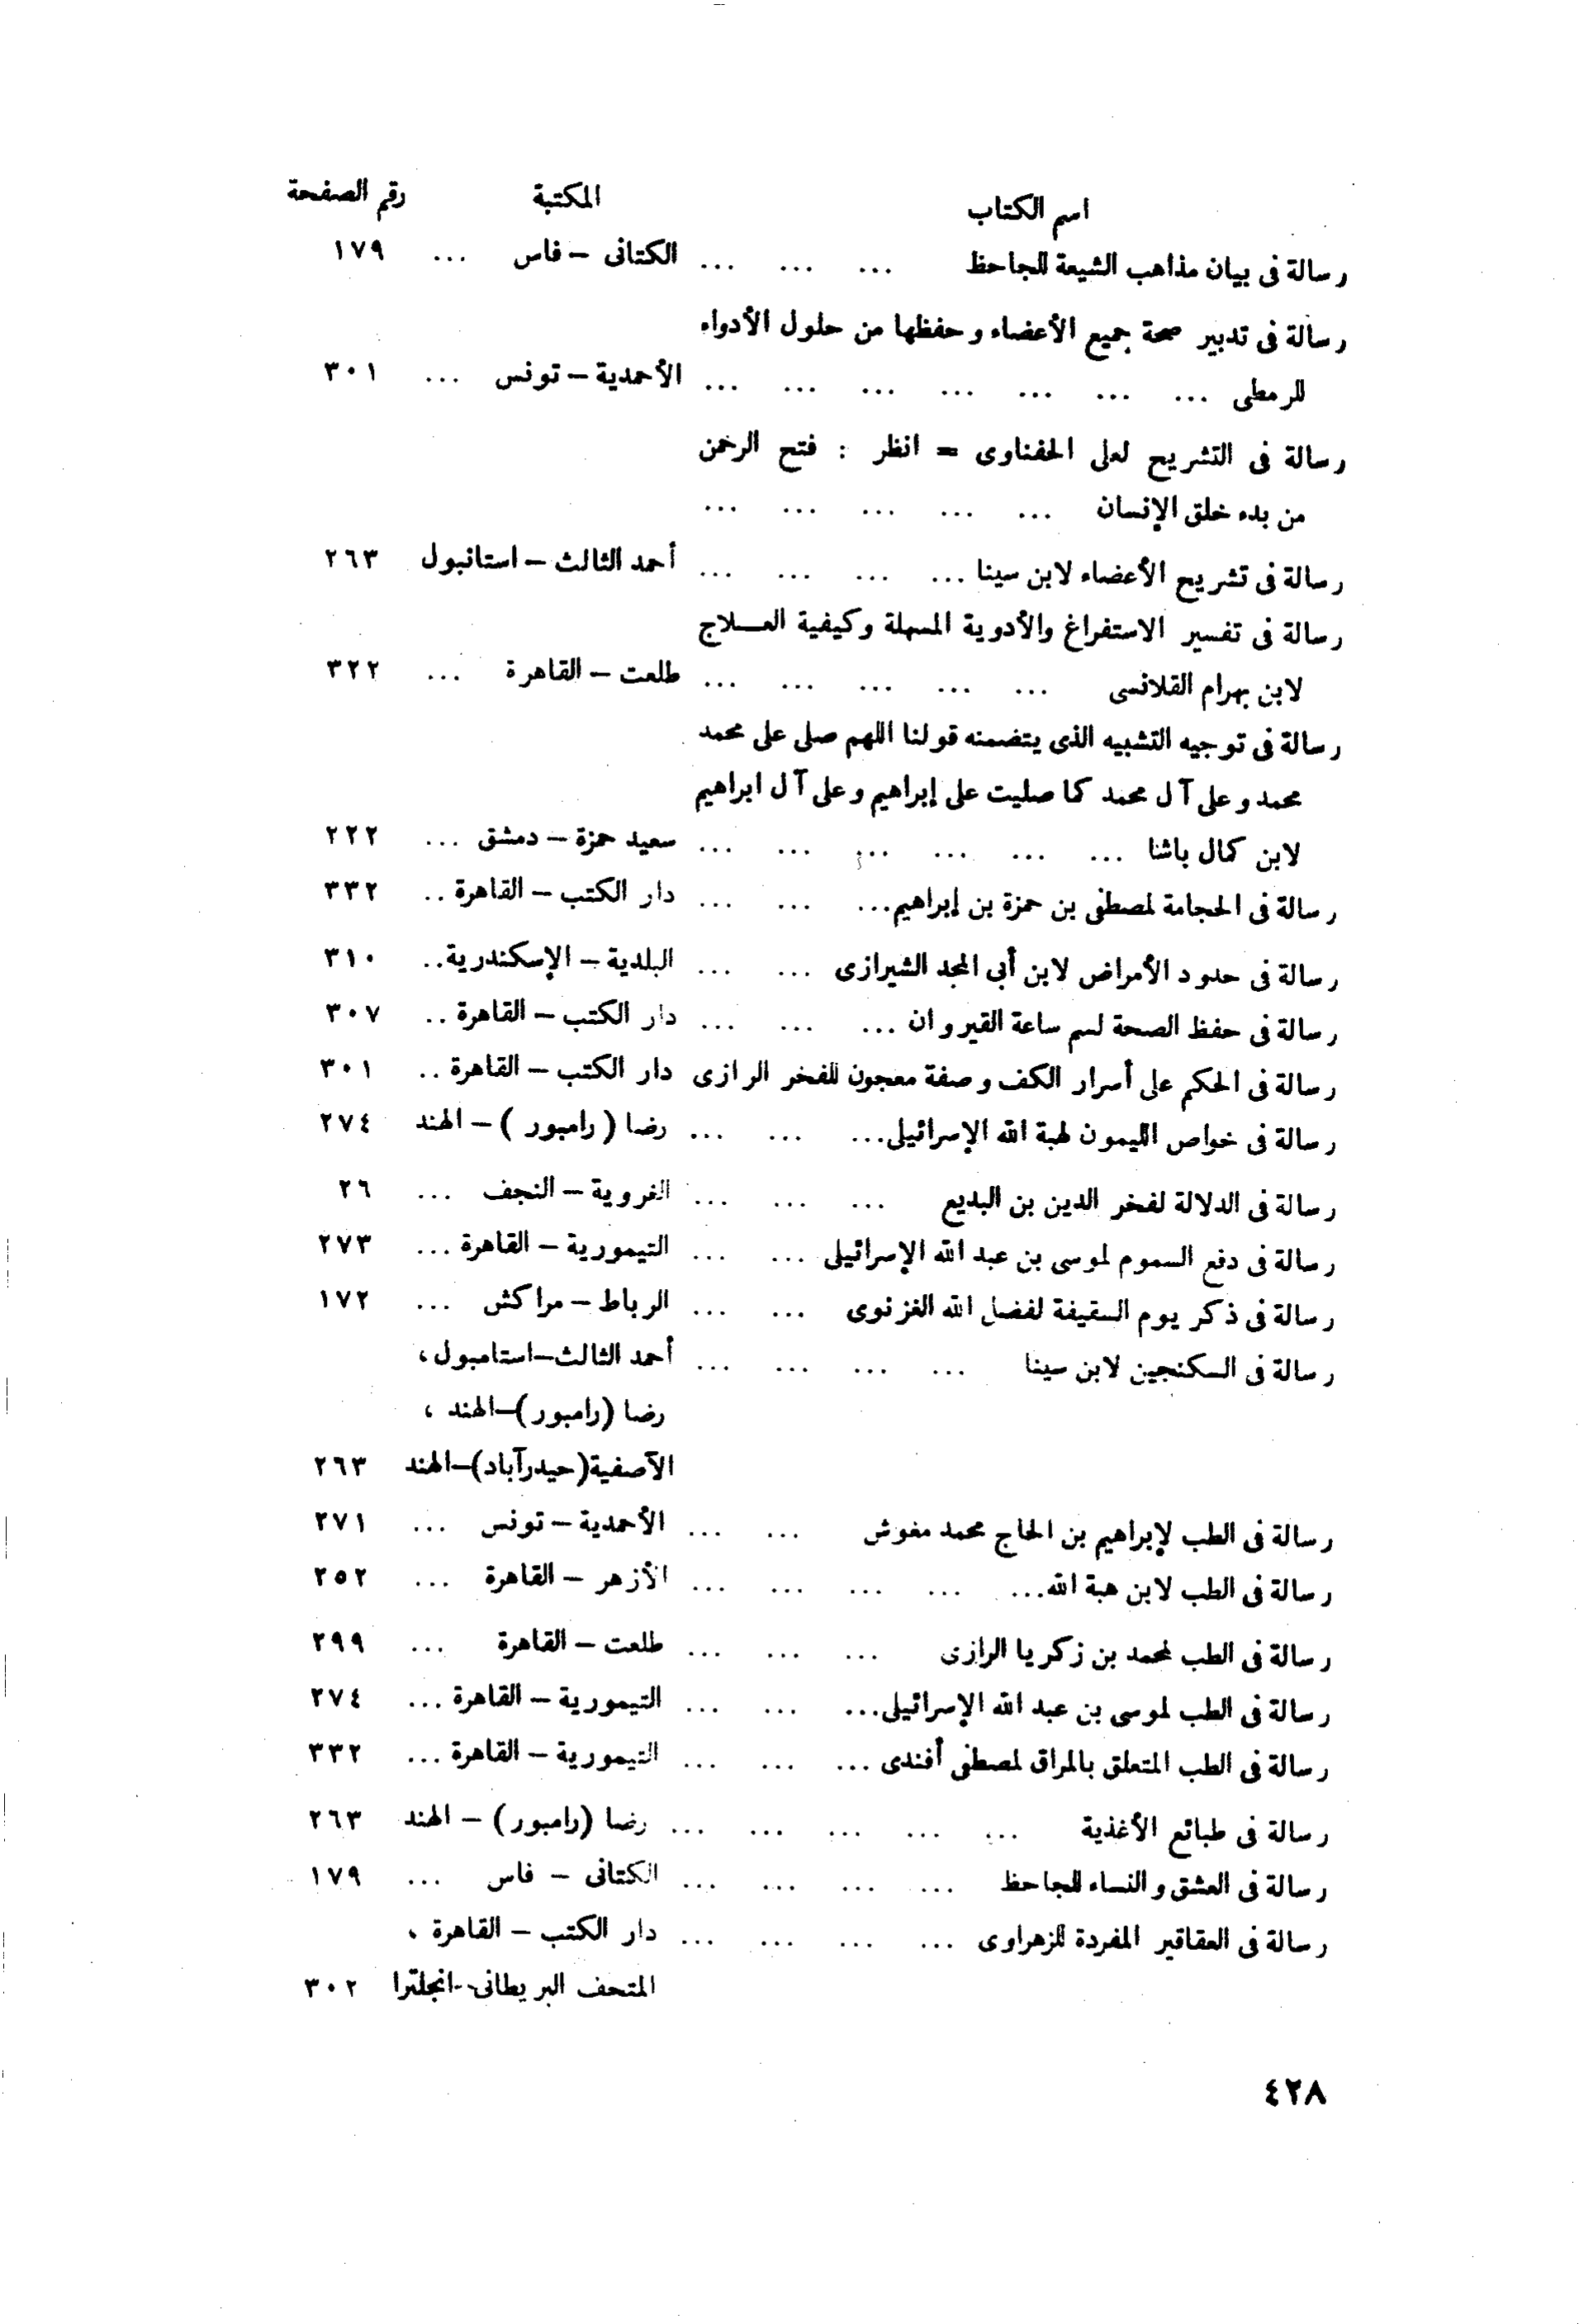 اسم الكتاب المكتبة رقم الصفحة
رسالة فى بيان مذاهب الشيعة للجاحظ ... ... ... الكتانى – فاس ... ١٧٩
رسالة فى تدبير صحة جميع الأعضاء وحفظها من حلول الأدواء
للرمطى ... ... ... ... ... ... ... الأحمدية – تونس ... ٣٠١
رسالة فى التشريح لعلى الحفناوى = انظر : فتح الرحمن
من بدء خلق الإنسان ... ... ... ... ...
رسالة فى تشريح الأعضاء لابن سينا ... ... ... ... أحمد الثالث – استانبول ٢٦٣
رسالة فى تفسير الاستفراغ والأدوية المسهلة وكيفية العـــلاج
لابن بهرام القلانسى ... ... ... ... ... طلعت – القاهرة ... ٣٢٢
رسالة فى توجيه التشبيه الذى يتضمنه قولنا اللهم صلى على محمد
محمد وعلى آل محمد كما صليت على إبراهيم وعلى آل ابراهيم
لابن كمال باشا ... ... ... ... ... ... سعيد حمزة – دمشق ... ٢٢٢
رسالة فى الحجامة لمصطفى بن حمزة بن إبراهيم... ... ... دار الكتب – القاهرة .. ٣٣٢
رسالة فى حدود الأمراض لابن أبى المجد الشيرازى ... ... البلدية – الإسكندرية.. ٣١٠
رسالة فى حفظ الصحة لسم ساعة القيروان ... ... ... دار الكتب – القاهرة .. ٣٠٧
رسالة فى الحكم على أسرار الكف وصفة معجون للفخر الرازى دار الكتب – القاهرة .. ٣٠١
رسالة فى خواص الليمون لهبة الله الإسرائيلى... ... ... رضا (رامبور) – الهند ٢٧٤
رسالة فى الدلالة لفخر الدين بن البديع ... ... ... الغروية – النجف ... ٢٦
رسالة فى دفع السموم لموسى بن عبد الله الإسرائيلى ... ... التيمورية – القاهرة ... ٢٧٣
رسالة فى ذكر يوم السقيفة لفضل الله الغزنوى ... ... الرباط – مراكش ... ١٧٢
رسالة فى السكنجين لابن سينا ... ... ... ... أحمد الثالث–استامبول،
رضا (رامبور)–الهند ،
الآصفية(حيدرآباد)–الهند ٢٦٣
رسالة فى الطب لإبراهيم بن الحاج محمد مغوش ... ... الأحمدية – تونس ... ٢٧١
رسالة فى الطب لابن هبة الله... ... ... ... ... الأزهر – القاهرة ... ٢٥٢
رسالة فى الطب لمحمد بن زكريا الرازى ... ... ... طلعت – القاهرة ... ٢٩٩
رسالة فى الطب لموسى بن عبد الله الإسرائيلى... ... ... التيمورية – القاهرة ... ٢٧٤
رسالة فى الطب المتعلق بالمراق لمصطفى أفندى ... ... ... التيمورية – القاهرة ... ٣٣٢
رسالة فى طبائع الأغذية ... ... ... ... ... رضا (رامبور) – الهند ٢٦٣
رسالة فى العشق والنساء للجاحظ ... ... ... ... الكتانى – فاس ... ١٧٩
رسالة فى العقاقير المفردة للزهراوى ... ... ... ... دار الكتب – القاهرة ،
المتحف البريطانى–انجلترا ٣٠٢
٤٢٨